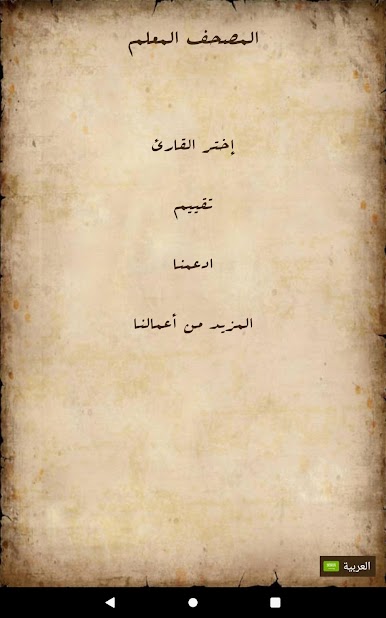 المصحف المعلم
إختر القارئ
تقييم
ادعمنا
المزيد من أعمالنا
العربية